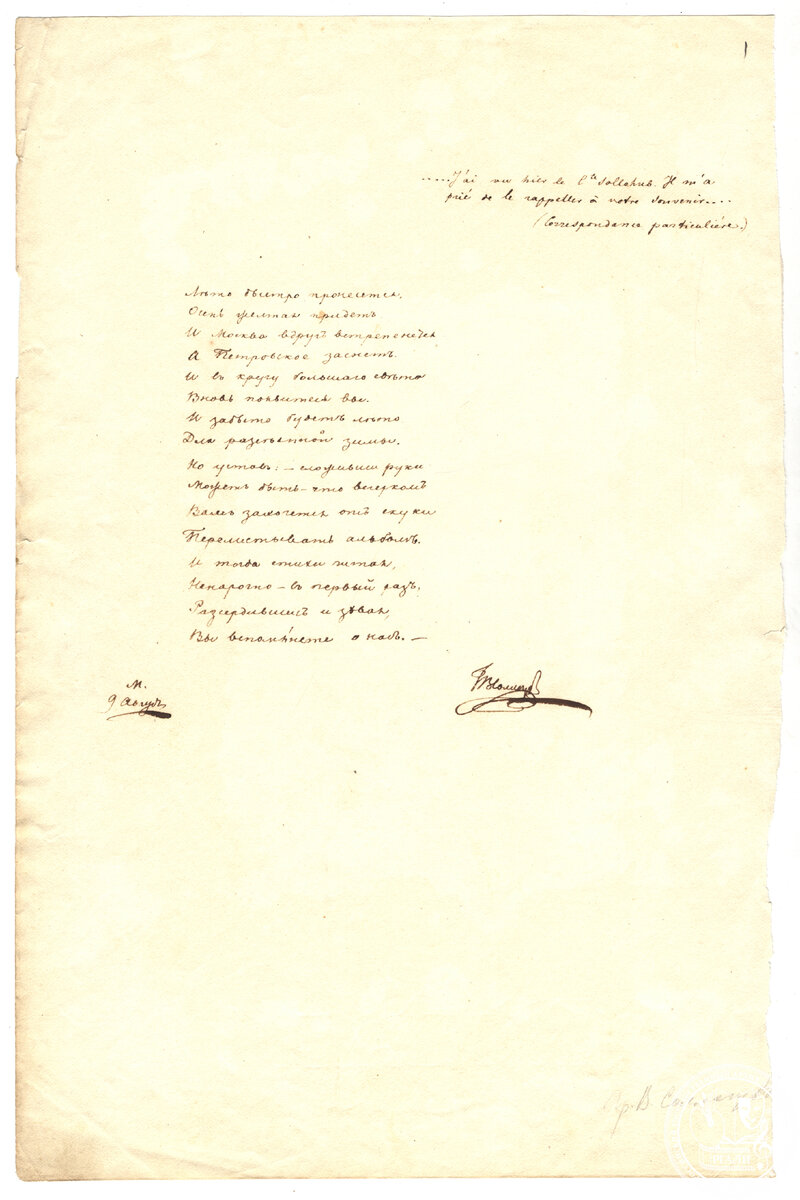 1
.....J'ai vu hier le Cte Sollohub. Il m'a
prié de le rappeller à votre souvenir....
(Correspondance particulière.)
Лѣто быстро пронесется.
Осень желтая придетъ
И Москва вдругъ встрепенется
А Петровское заснетъ.
И въ кругу большаго свѣта
Вновь появитесь вы.
И забыто будетъ лѣто
Для разсѣянной зимы.
Но уставъ: – сложивши руки
Можетъ быть – что вечеркомъ
Вамъ захочется отъ скуки
Перелистывать альбомъ.
И тогда стихи читая,
Ненарочно – въ первый разъ,
Разсердившись и зѣвая,
Вы вспомянете о насъ. –
М.
9 Августа
Гр. В. Соллогубъ